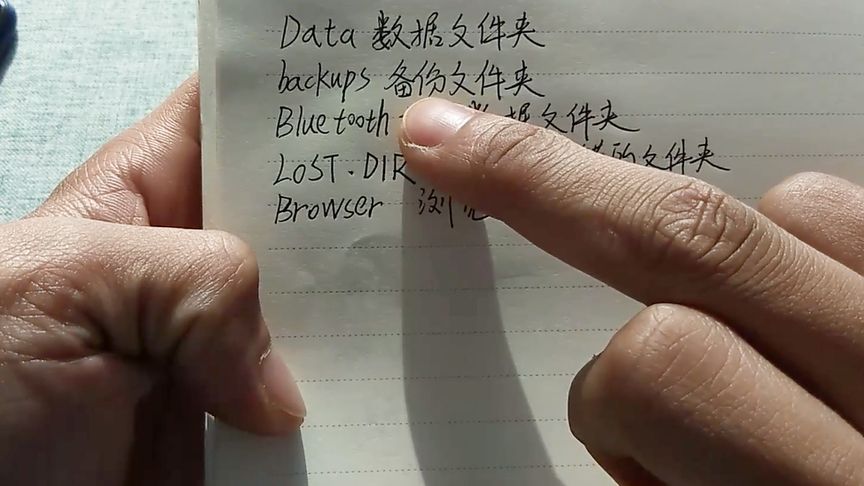 Data 数据文件夹
backups 备份文件夹
Bluetooth 据文件夹
LOST.DIR 的文件夹
Browser 浏览